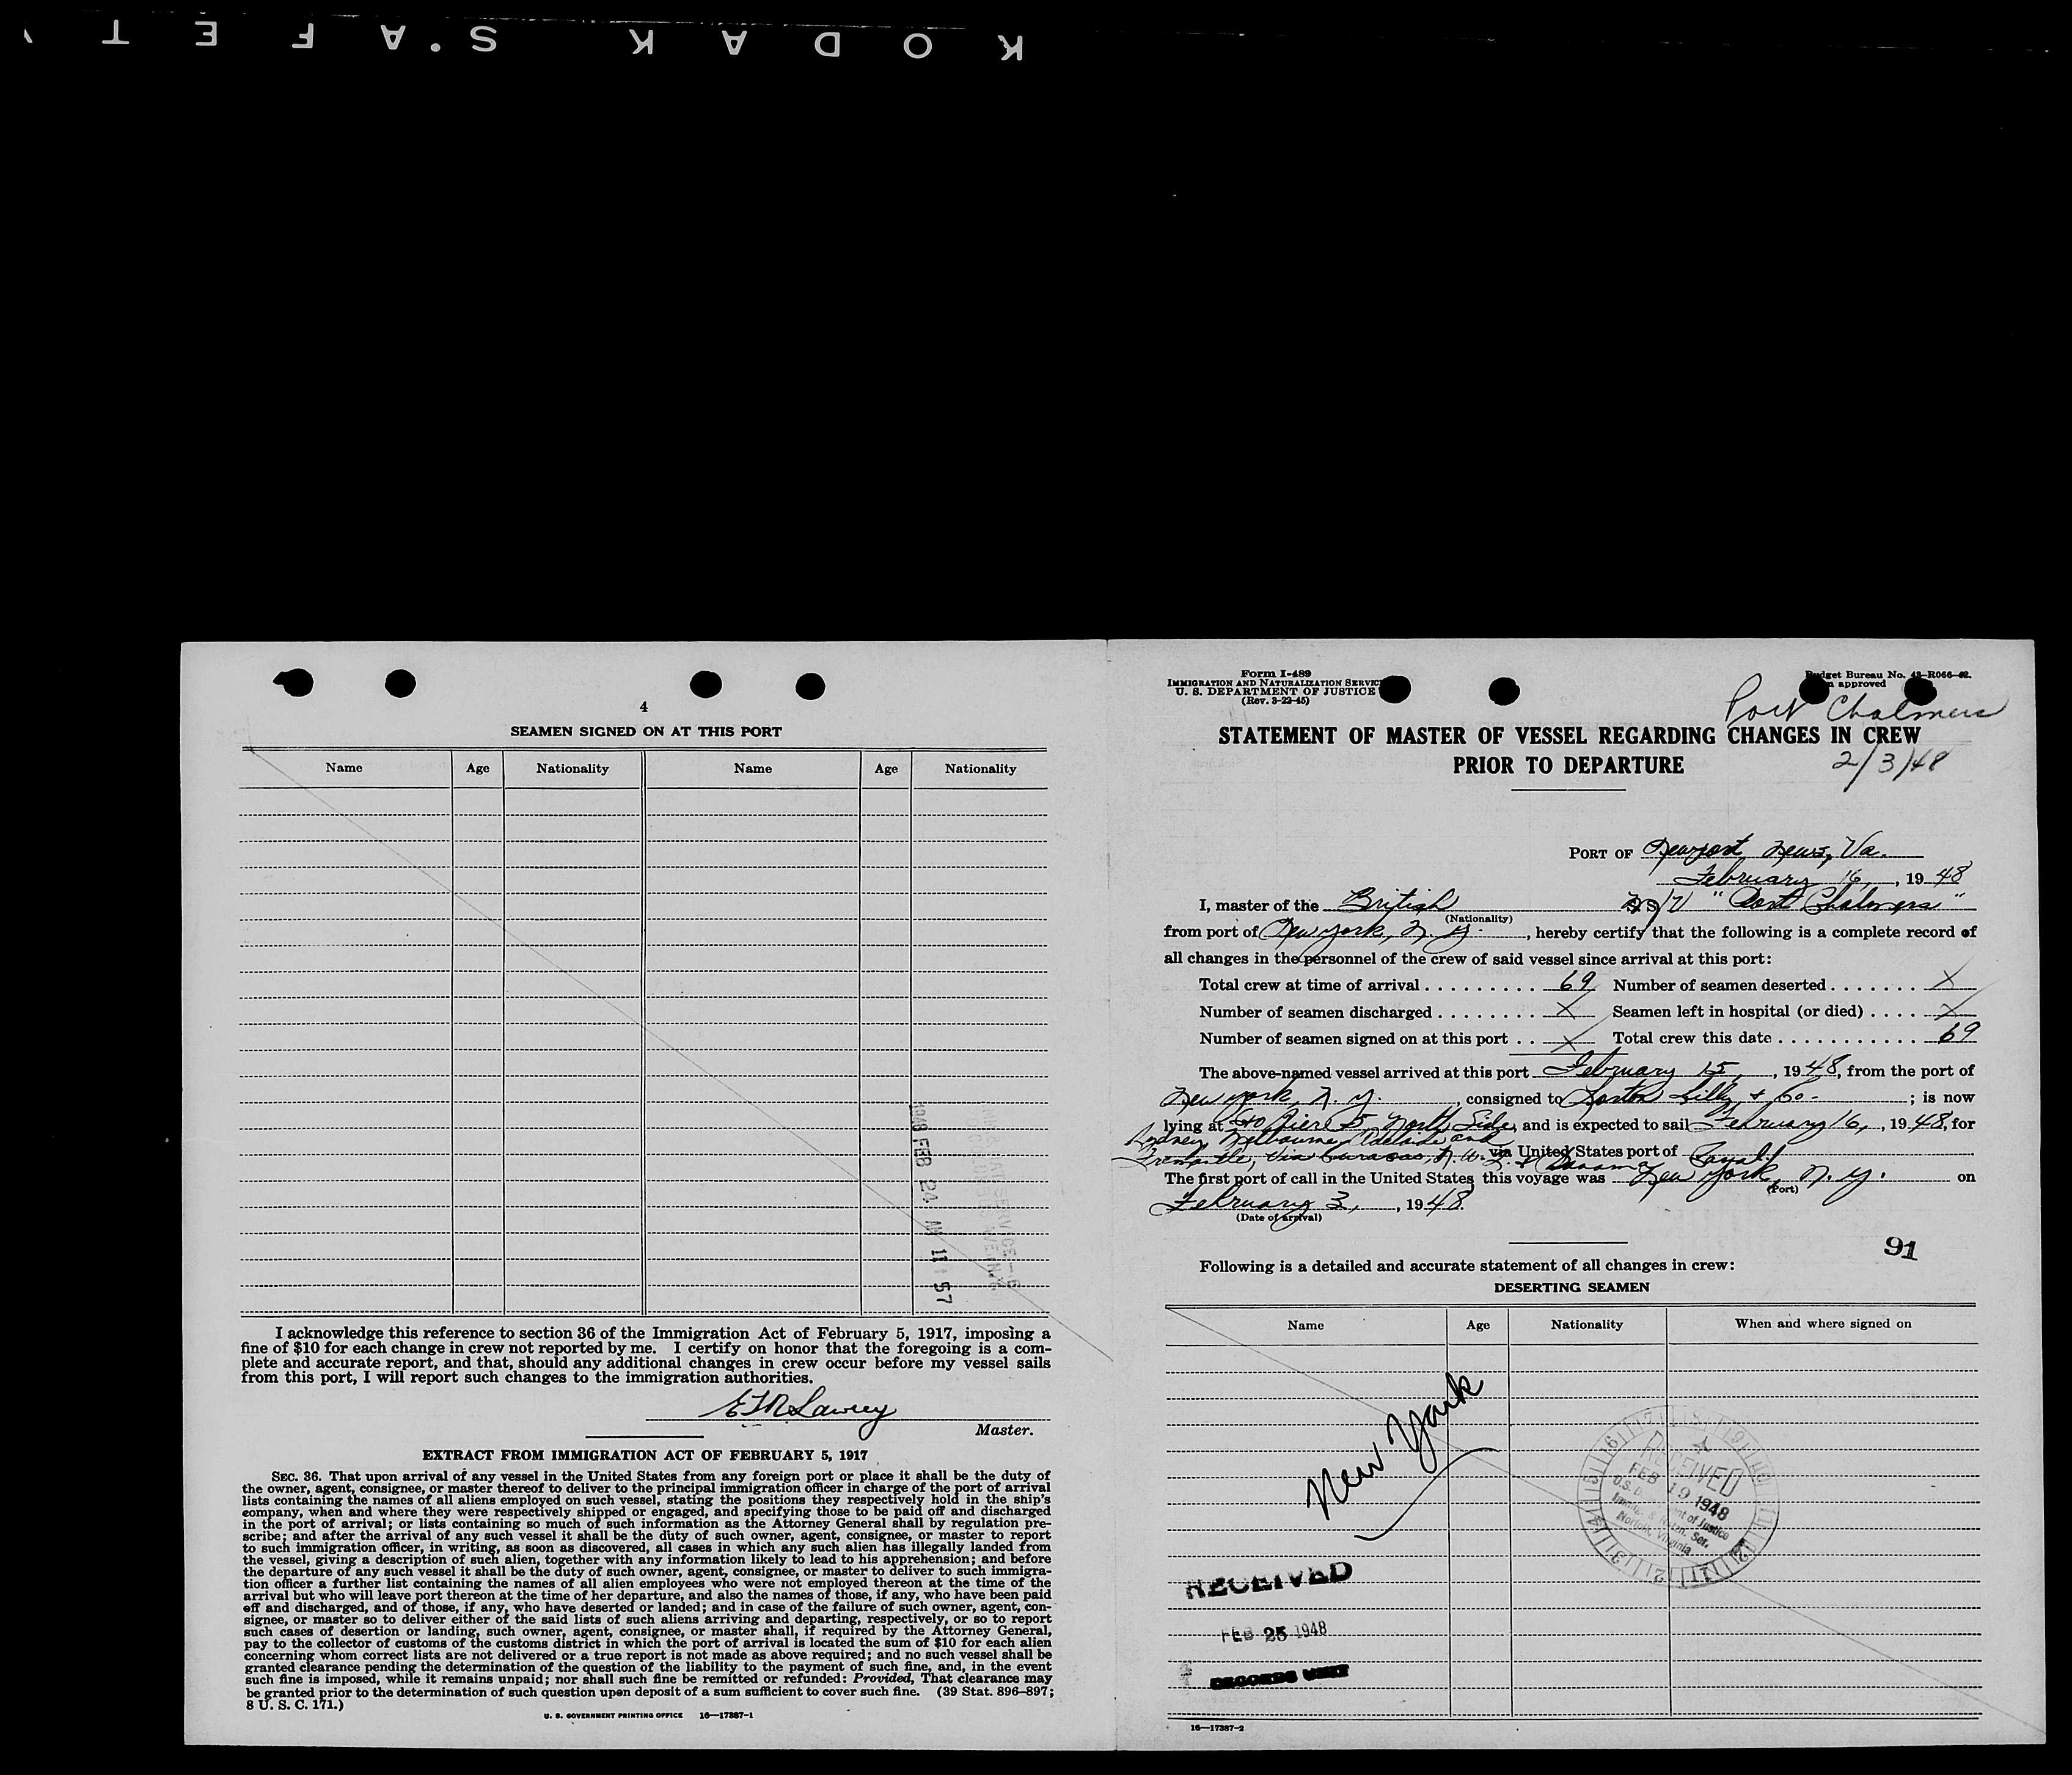 KODAK S·AFET
4
SEAMEN SIGNED ON AT THIS PORT
Name Age Nationality Name Age Nationality
1948 FEB 24 AM 11 57
I acknowledge this reference to section 36 of the Immigration Act of February 5, 1917, imposing a
fine of $10 for each change in crew not reported by me. I certify on honor that the foregoing is a com-
plete and accurate report, and that, should any additional changes in crew occur before my vessel sails
from this port, I will report such changes to the immigration authorities.
Master.
EXTRACT FROM IMMIGRATION ACT OF FEBRUARY 5, 1917
SEC. 36. That upon arrival of any vessel in the United States from any foreign port or place it shall be the duty of
the owner, agent, consignee, or master thereof to deliver to the principal immigration officer in charge of the port of arrival
lists containing the names of all aliens employed on such vessel, stating the positions they respectively hold in the ship's
company, when and where they were respectively shipped or engaged, and specifying those to be paid off and discharged
in the port of arrival; or lists containing so much of such information as the Attorney General shall by regulation pre-
scribe; and after the arrival of any such vessel it shall be the duty of such owner, agent, consignee, or master to report
to such immigration officer, in writing, as soon as discovered, all cases in which any such alien has illegally landed from
the vessel, giving a description of such alien, together with any information likely to lead to his apprehension; and before
the departure of any such vessel it shall be the duty of such owner, agent, consignee, or master to deliver to such immigra-
tion officer a further list containing the names of all alien employees who were not employed thereon at the time of the
arrival but who will leave port thereon at the time of her departure, and also the names of those, if any, who have been paid
off and discharged, and of those, if any, who have deserted or landed; and in case of the failure of such owner, agent, con-
signee, or master so to deliver either of the said lists of such aliens arriving and departing, respectively, or so to report
such cases of desertion or landing, such owner, agent, consignee, or master shall, if required by the Attorney General,
pay to the collector of customs of the customs district in which the port of arrival is located the sum of $10 for each alien
concerning whom correct lists are not delivered or a true report is not made as above required; and no such vessel shall be
granted clearance pending the determination of the question of the liability to the payment of such fine, and, in the event
such fine is imposed, while it remains unpaid; nor shall such fine be remitted or refunded: Provided, That clearance may
be granted prior to the determination of such question upon deposit of a sum sufficient to cover such fine. (39 Stat. 896–897;
8 U. S. C. 171.)
U. S. GOVERNMENT PRINTING OFFICE 16—17387-1
Form I-489
IMMIGRATION AND NATURALIZATION SERVICE
U. S. DEPARTMENT OF JUSTICE
(Rev. 3-22-45)
Budget Bureau No. 43-R066-42.
approved
Port Chalmers
STATEMENT OF MASTER OF VESSEL REGARDING CHANGES IN CREW
PRIOR TO DEPARTURE
2/3/48
PORT OF Newport News, Va.
February 16, 1948
I, master of the British "Port Chalmers"
(Nationality)
from port of New York, N. Y. , hereby certify that the following is a complete record of
all changes in the personnel of the crew of said vessel since arrival at this port:
Total crew at time of arrival . . . . . . . . . 69 Number of seamen deserted . . . . . . . X
Number of seamen discharged . . . . . . . . X Seamen left in hospital (or died) . . . . X
Number of seamen signed on at this port . . X Total crew this date . . . . . . . . . . . 69
The above-named vessel arrived at this port February 15, 1948, from the port of
New York, N. Y. , consigned to Norton Lilly & Co. ; is now
lying at C&O Pier 5, North Side, and is expected to sail February 16, 1948, for
Sydney, Melbourne, Adelaide and
Fremantle, via Curacao, N. W. I. & Panama Canal. via United States port of
The first port of call in the United States this voyage was New York, N. Y. on
(Port)
February 3, 1948.
(Date of arrival)
91
Following is a detailed and accurate statement of all changes in crew:
DESERTING SEAMEN
Name Age Nationality When and where signed on
New York
RECEIVED
FEB 19 1948
U.S. Department of Justice
Immigr. & Natzn. Ser.
Norfolk, Virginia
RECEIVED
FEB 25 1948
RECORDS UNIT
16—17387-2